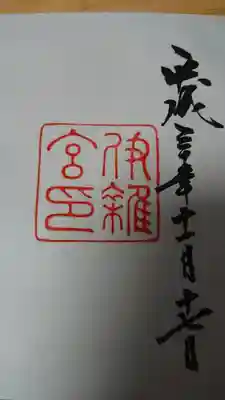 平成三十年十一月十七日
伊雜
宮印